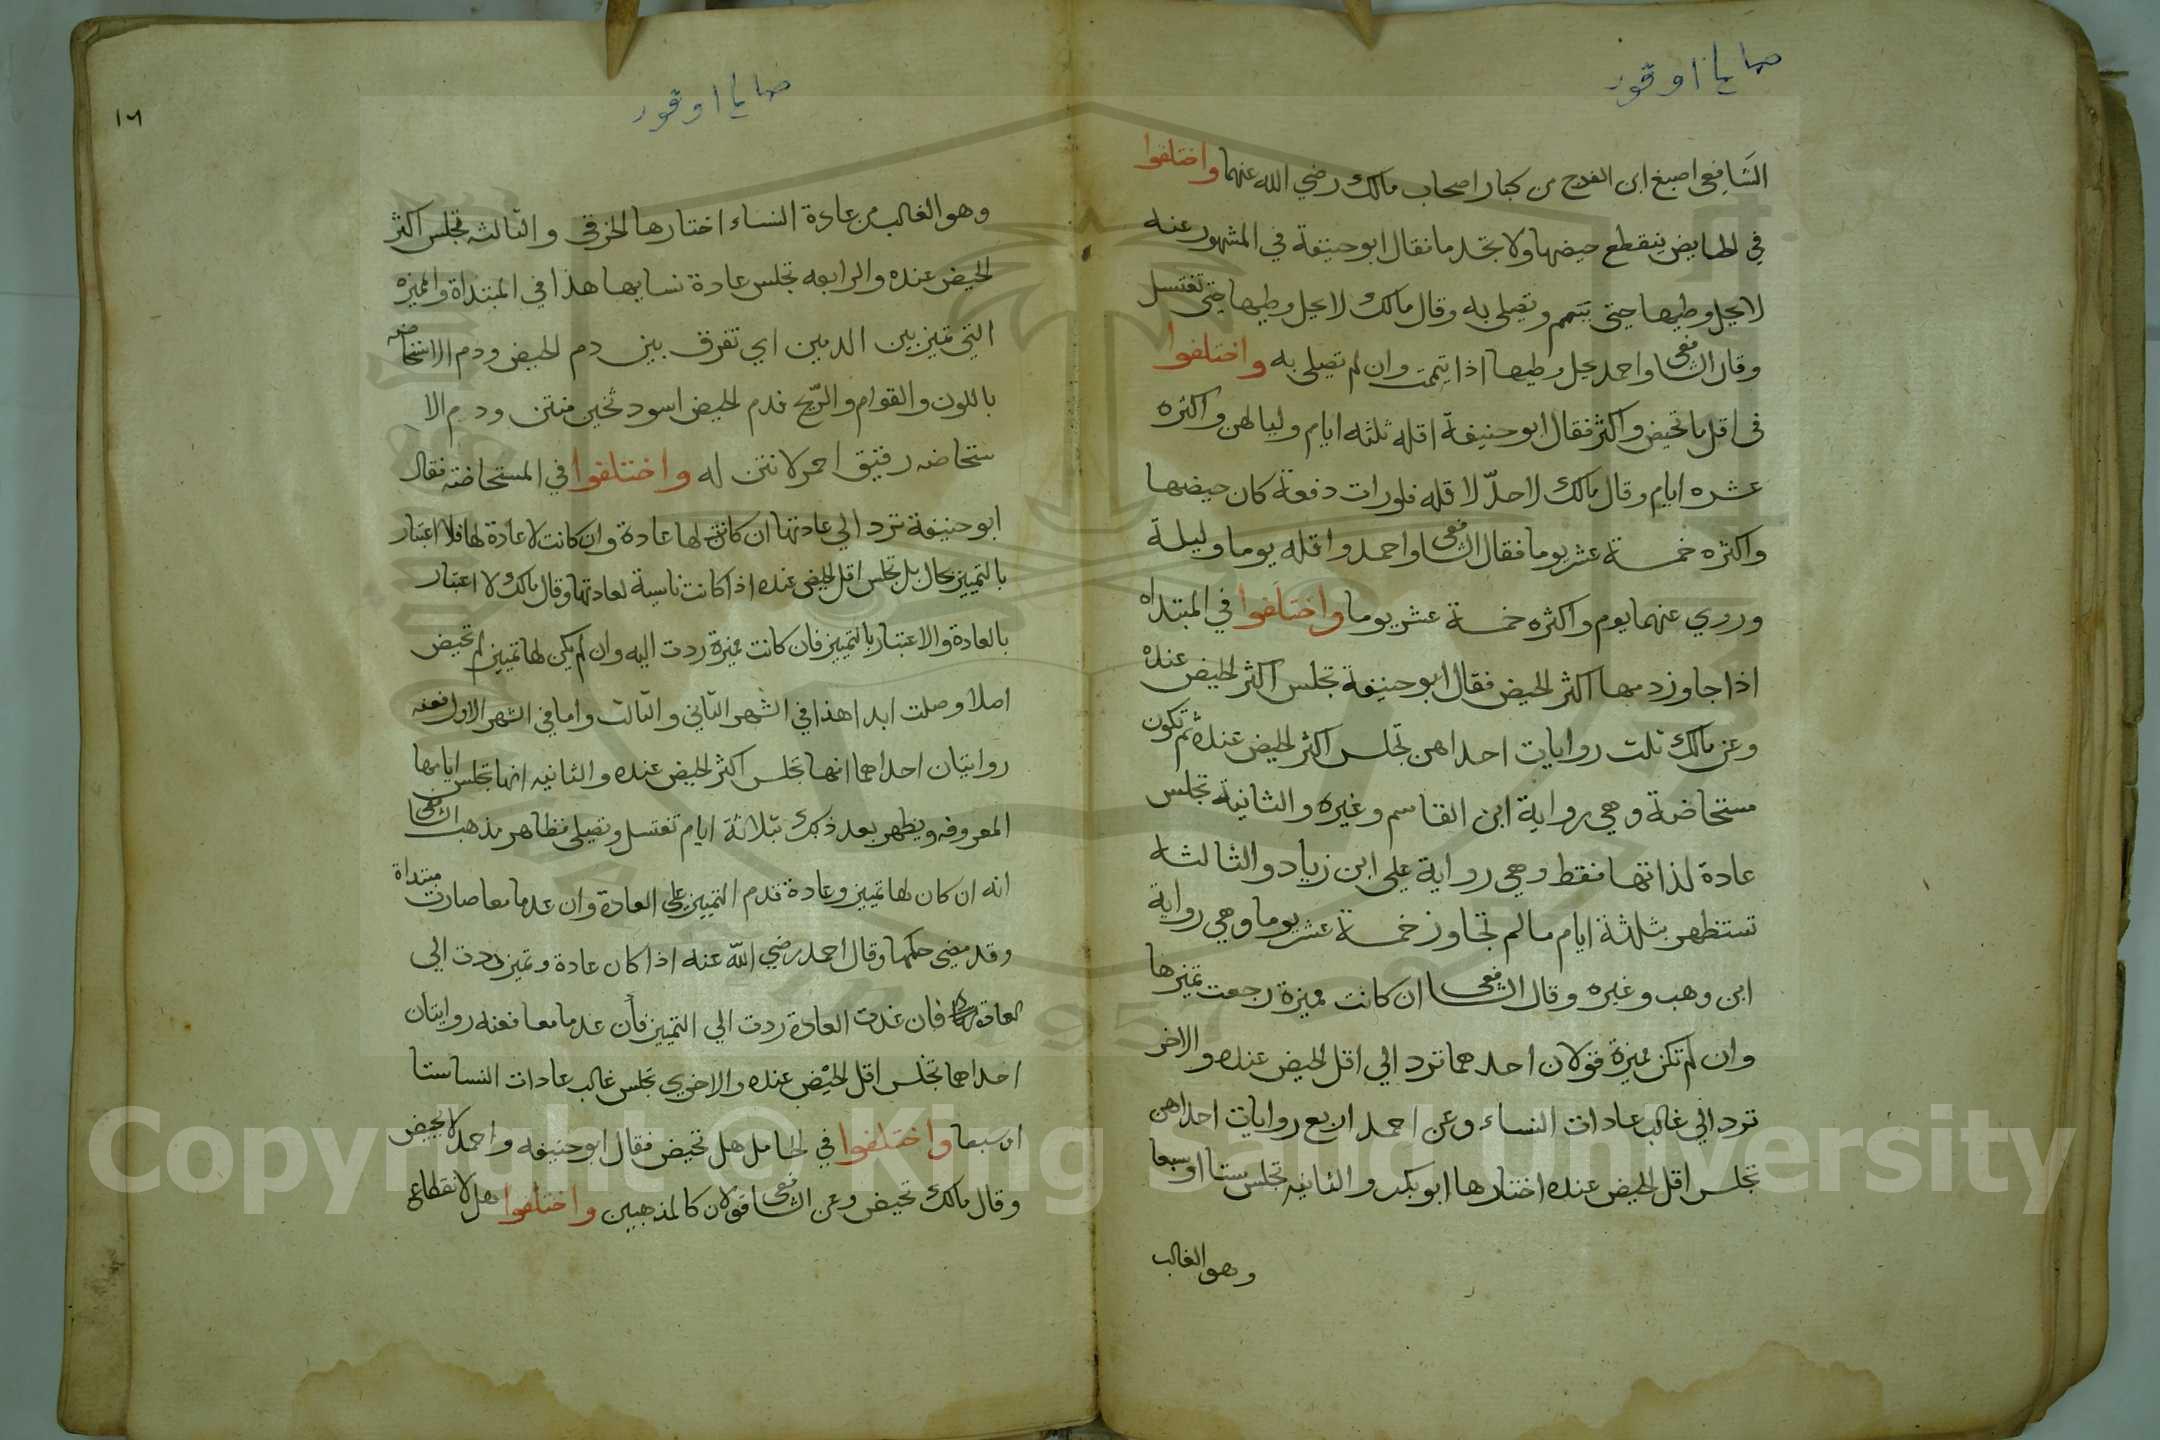 الشافعى اصبغ ابن الفرج من كبار اصحاب مالك رضي الله عنهما واختلفوا
في الحايض ينقطع حيضها ولا تجد ما فقال ابو حنيفة في المشهور عنه
لا يحل وطيها حتى تتيمم وتصلى به وقال مالك لا يحل وطيها حتى تغتسل
وقال الشافعى واحمد يحل وطيها اذا تيممت وان لم تصلى به واختلفوا
فى اقل ما تحيض واكثر فقال ابو حنيفة اقله ثلثه ايام ولياليهن واكثره
عشره ايام وقال مالك لا حدّ لا قله فلورات دفعة كان حيضها
واكثره خمسة عشر يوما فقال الشافعى واحمد واقله يوما وليلة
وروي عنهما يوم واكثره خمسة عشر يوما واختلفوا في المبتداه
اذا جاوز دمها اكثر الحيض فقال ابو حنيفة تجلس اكثر الحيض عنده
وعن مالك ثلث روايات احداهن تجلس اكثر الحيض عنده ثم تكون
مستحاضة وهي رواية ابن القاسم وغيره والثانية تجلس
عادة لذاتها فقط وهي رواية على ابن زياد والثالثه
تستظهر بثلثة ايام مالم تجاوز خمسة عشر يوما وهي رواية
ابن وهب وغيره وقال الشافعى ان كانت مميزة رجعت تميزها
وان لم تكن مميزة قولان احدهما ترد الي اقل الحيض عنده والاخر
ترد الي غالب عادات النساء وعن احمد اربع روايات احداهن
تجلس اقل الحيض عنده اختارها ابو بكر والثانيه تجلس ستا او سبعا
وهو الغالب
١٦
وهو الغالب من عادة النساء اختارها الخرقى والثالثه تجلس اكثر
الحيض عنده والرابعه تجلس عادة نسايها هذا في المبتداة والمميزه
التي تميز بين الدمين اي تفرق بين دم الحيض ودم الاستحاضه
باللون والقوام والرّيح فدم الحيض اسود ثخين منتن ودم الا
ستحاضه رقيق احمر لا نتن له واختلفوا في المستحاضة فقال
ابو حنيفة ترد الي عادتها ان كانت لها عادة وان كانت لا عادة لها فلا اعتبار
بالتمييز بحال بل تجلس اقل الحيض عنده اذا كانت ناسية لعادتها وقال مالك لا اعتبار
بالعادة والاعتبار بالتمييز فان كانت مميزة ردت اليه وان لم يكن لها تمييز لم تحيض
اصلا وصلت ابدا هذا في الشهر الثاني والثالث واما في الشهر الاول فعنه
روايتان احداهما انها تجلس اكثر الحيض عنده والثانيه انها تجلس ايامها
المعروفه ويظهر بعد ذلك بثلاثة ايام تغتسل وتصلى فظاهر مذهب الشافعى
انه ان كان لها تمييز وعادة قدم التمييز على العادة وان عدما معا صارت مبتداة
وقد مضى حكمها وقال احمد رضي الله عنه اذا كان عادة وتميز ردت الى
العادة فان عدت العادة ردت الي التمييز فان عدما معا فعنه روايتان
احداهما تجلس اقل الحيض عنده والاخري تجلس غالب عادات النسا ستا
او سبعا واختلفوا في الحامل هل تحيض فقال ابو حنيفه واحمد لا تحيض
وقال مالك تحيض وعن الشافعى قولان كالمذهبين واختلفوا هل لا نقطاع
Copyright © King Saud University
1957